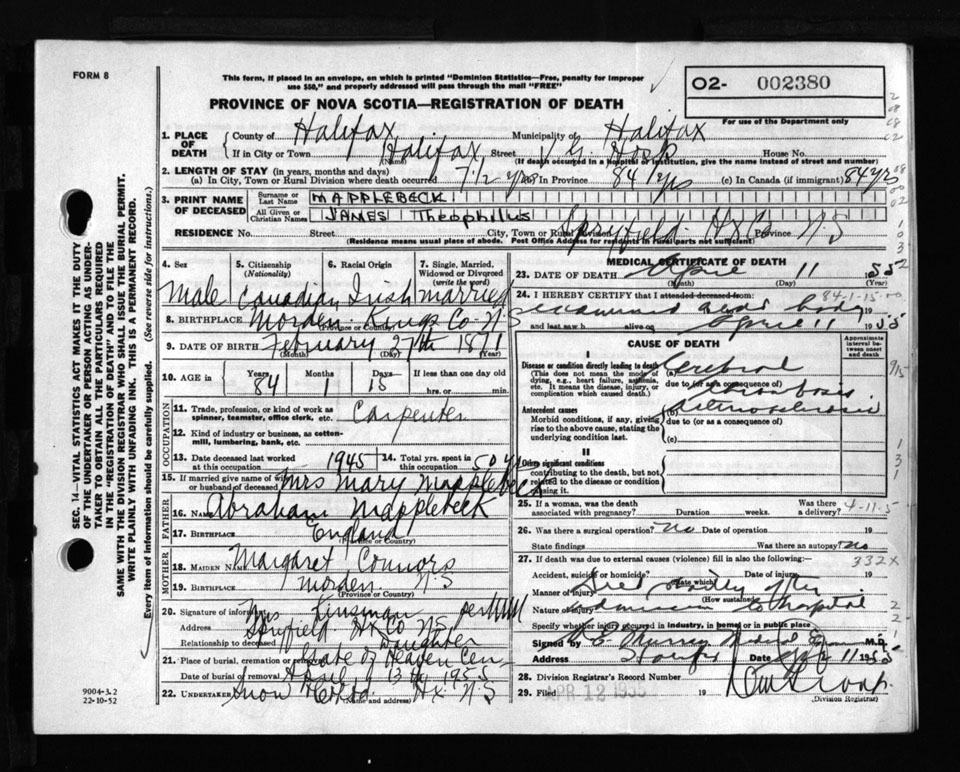 FORM 8
This form, if placed in an envelope, on which is printed "Dominion Statistics—Free, penalty for improper
use $50," and properly addressed will pass through the mail "FREE"
O2- 002380
For use of the Department only
PROVINCE OF NOVA SCOTIA—REGISTRATION OF DEATH
1. PLACE OF DEATH
County of Halifax Municipality of Halifax
If in City or Town Halifax Street V. G. Hosp House No.
(Name) (If death occurred in a hospital or institution, give the name instead of street and number)
2. LENGTH OF STAY (in years, months and days)
(a) In City, Town or Rural Division where death occurred 7 1/2 yrs (b) In Province 84 yrs (c) In Canada (if immigrant) 84 yrs
3. PRINT NAME OF DECEASED
Surname or Last Name MAPPLEBECK
All Given or Christian Names JAMES Theophilus
RESIDENCE No. Street City, Town or Rural Division Spryfield Hx Co Province N.S
(Residence means usual place of abode. Post Office Address for residents in rural parts not sufficient)
4. Sex Male
5. Citizenship (Nationality) Canadian
6. Racial Origin Irish
7. Single, Married, Widowed or Divorced (write the word) married
8. BIRTHPLACE Morden Kings Co N.S
(Province or Country)
9. DATE OF BIRTH February 27th 1871
(Month) (Day) (Year)
10. AGE in Years 84 Months 1 Days 15 If less than one day old
hrs. or min.
OCCUPATION
11. Trade, profession, or kind of work as spinner, teamster, office clerk, etc. Carpenter
12. Kind of industry or business, as cotton-mill, lumbering, bank, etc.
13. Date deceased last worked at this occupation 1945
14. Total yrs. spent in this occupation 50 yrs
15. If married give name of wife or husband of deceased Mrs Mary Mapplebeck
FATHER
16. NAME Abraham Mapplebeck
17. BIRTHPLACE England
(Province or Country)
MOTHER
18. MAIDEN NAME Margaret Connors
19. BIRTHPLACE Morden N.S
(Province or Country)
20. Signature of informant Mrs Kinsman per
Address Spryfield Hx Co N.S
Relationship to deceased Daughter
21. Place of burial, cremation or removal Gate of Heaven Cem
Date of burial or removal April 13th 1955
22. UNDERTAKER Snow Hx N.S
(Name and address)
MEDICAL CERTIFICATE OF DEATH
23. DATE OF DEATH April 11 1955
(Month) (Day) (Year)
84-1-15-00
24. I HEREBY CERTIFY that I attended deceased from: examined dead body
and last saw h alive on April 11 1955
CAUSE OF DEATH
Approximate interval between onset and death
I
Disease or condition directly leading to death (a) Cerebral
(This does not mean the mode of dying, e.g., heart failure, asthenia, etc. It means the disease, injury, or complication which caused death.)
due to (or as a consequence of) Thrombosis
Antecedent causes
Morbid conditions, if any, giving rise to the above cause, stating the underlying condition last.
(b) Arteriosclerosis
due to (or as a consequence of)
(c)
II
Other significant conditions
contributing to the death, but not related to the disease or condition causing it.
25. If a woman, was the death associated with pregnancy? Duration weeks. Was there a delivery? 4-11-5
26. Was there a surgical operation? no Date of operation 19
State findings Was there an autopsy? no
27. If death was due to external causes (violence) fill in also the following: 332X
Accident, suicide or homicide? Date of injury 19
(State which)
Manner of injury Died shortly after
(How sustained)
Nature of injury admission to hospital
Specify whether injury occurred in industry, in home, or in public place
Signed by Murray Medical Ex M.D.
Address Halifax Date Apr 11 1955
28. Division Registrar's Record Number
29. Filed APR 12 1955 19
(Division Registrar)
SEC. 14—VITAL STATISTICS ACT MAKES IT THE DUTY
OF THE UNDERTAKER OR PERSON ACTING AS UNDER-
TAKER TO OBTAIN ALL THE PARTICULARS REQUIRED
IN THE "REGISTRATION OF DEATH" AND TO FILE THE
SAME WITH THE DIVISION REGISTRAR WHO SHALL ISSUE THE BURIAL PERMIT.
WRITE PLAINLY WITH UNFADING INK. THIS IS A PERMANENT RECORD.
Every item of information should be carefully supplied. (See reverse side for instructions.)
9004-3.2
22-10-52